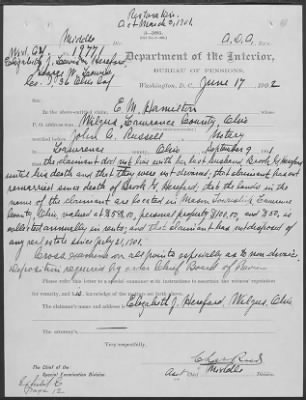 Act March 3, 1901.
3—280.
Middle
A.C.A.
Wid. Orf 1771
Elizabeth J. Hereford
Department of the Interior,
BUREAU OF PENSIONS,
Washington, D.C., June 17, 1902
Co. 36 Ohio Inf
In the above-entitled claim, E. M. Hamilton
P.O. address Wilgus, Lawrence County, Ohio
John A. Russell Notary
Lawrence Ohio September 9
the claimant did not live with her last husband, Hereford
until his death and that they were not divorced, that claimant has not
remarried since death of Hereford, that the lands in the
name of the claimant are located in Mason Township Lawrence
County, Ohio, valued at $598.00, personal property $100.00, and $50. is
collected annually in rents, and that claimant has not disposed of
any real estate since July 21, 1901.
Cross examine on all points especially as to non divorce.
Deposition required by order Chief Board of Review
Please refer this letter to a special examiner with instruction to ascertain the witness' reputation
for veracity, and his knowledge of the matters set forth above.
The claimant's name and address is Elizabeth J. Hereford, Wilgus, Ohio
The attorney is
Very respectfully,
Middle Div.
The Chief of the
Special Examination Division.
Exhibit C
Page 12